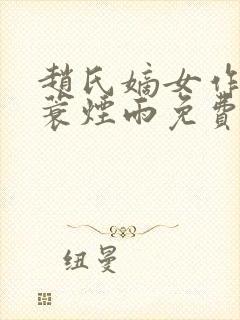 趙氏嫡女作
蓑煙雨免費
纽曼